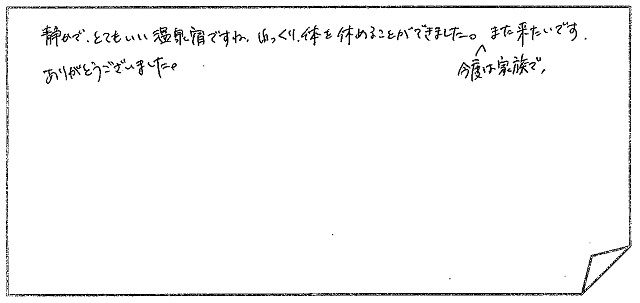 静かで、とてもいい温泉宿ですね。ゆっくり、体を休めることができました。今度は家族で、また来たいです。
ありがとうございました。